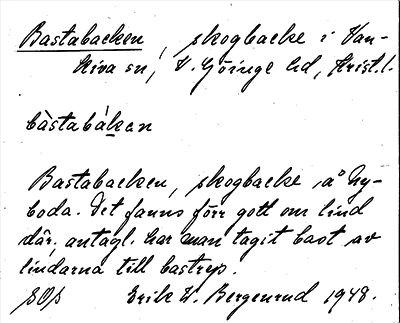 Bastabacken, skogbacke i Van-
kiva sn, V. Göinge hd, Krist. l.
bàstabákan
Bastabacken, skogbacke å Ny-
boda. Det fanns förr gott om lind
där, antagl. har man tagit bast av
lindarna till bastrep.
Erik W. Bergenrud 1948.